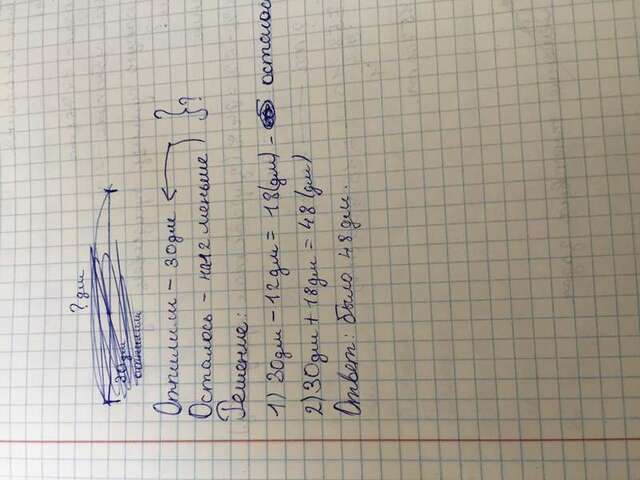 ? дм
30 дм
отпилили
Отпилили - 30 дм
Осталось - на 12 меньше
?
Решение:
1) 30дм - 12 дм = 18(дм) - осталос
2) 30дм + 18дм = 48 (дм)
Ответ: было 48 дм.